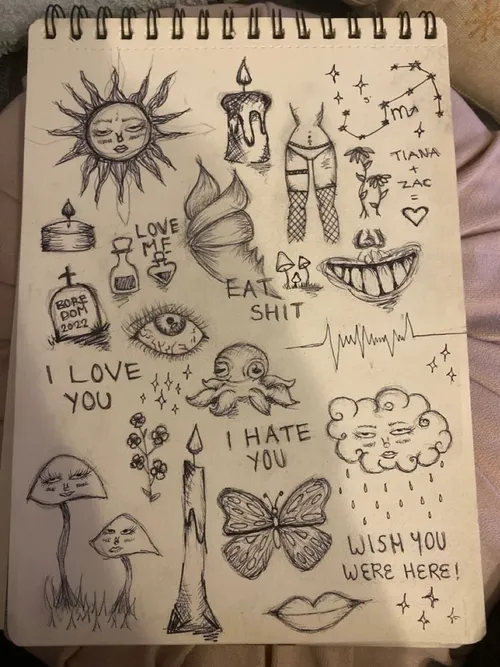 ♏
TIANA
+
ZAC
=
LOVE
ME
EAT
SHIT
BORE
DOM
2022
I LOVE
YOU
I HATE
YOU
WISH YOU
WERE HERE!